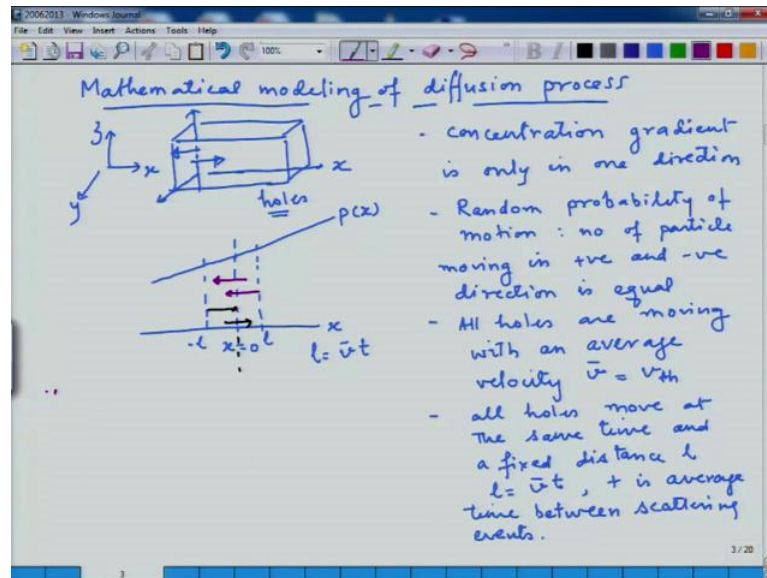 20062013 - Windows Journal
File Edit View Insert Actions Tools Help
100%
B I
Mathematical modeling of diffusion process
z
x
y
x
holes
p(x)
-l x=0 l
x
l = v̄ t
- concentration gradient
is only in one direction
- Random probability of
motion : no of particle
moving in +ve and -ve
direction is equal
- All holes are moving
with an average
velocity v̄ = vth
- all holes move at
the same time and
a fixed distance l
l = v̄ t , t is average
time between scattering
events.
3 / 20
3